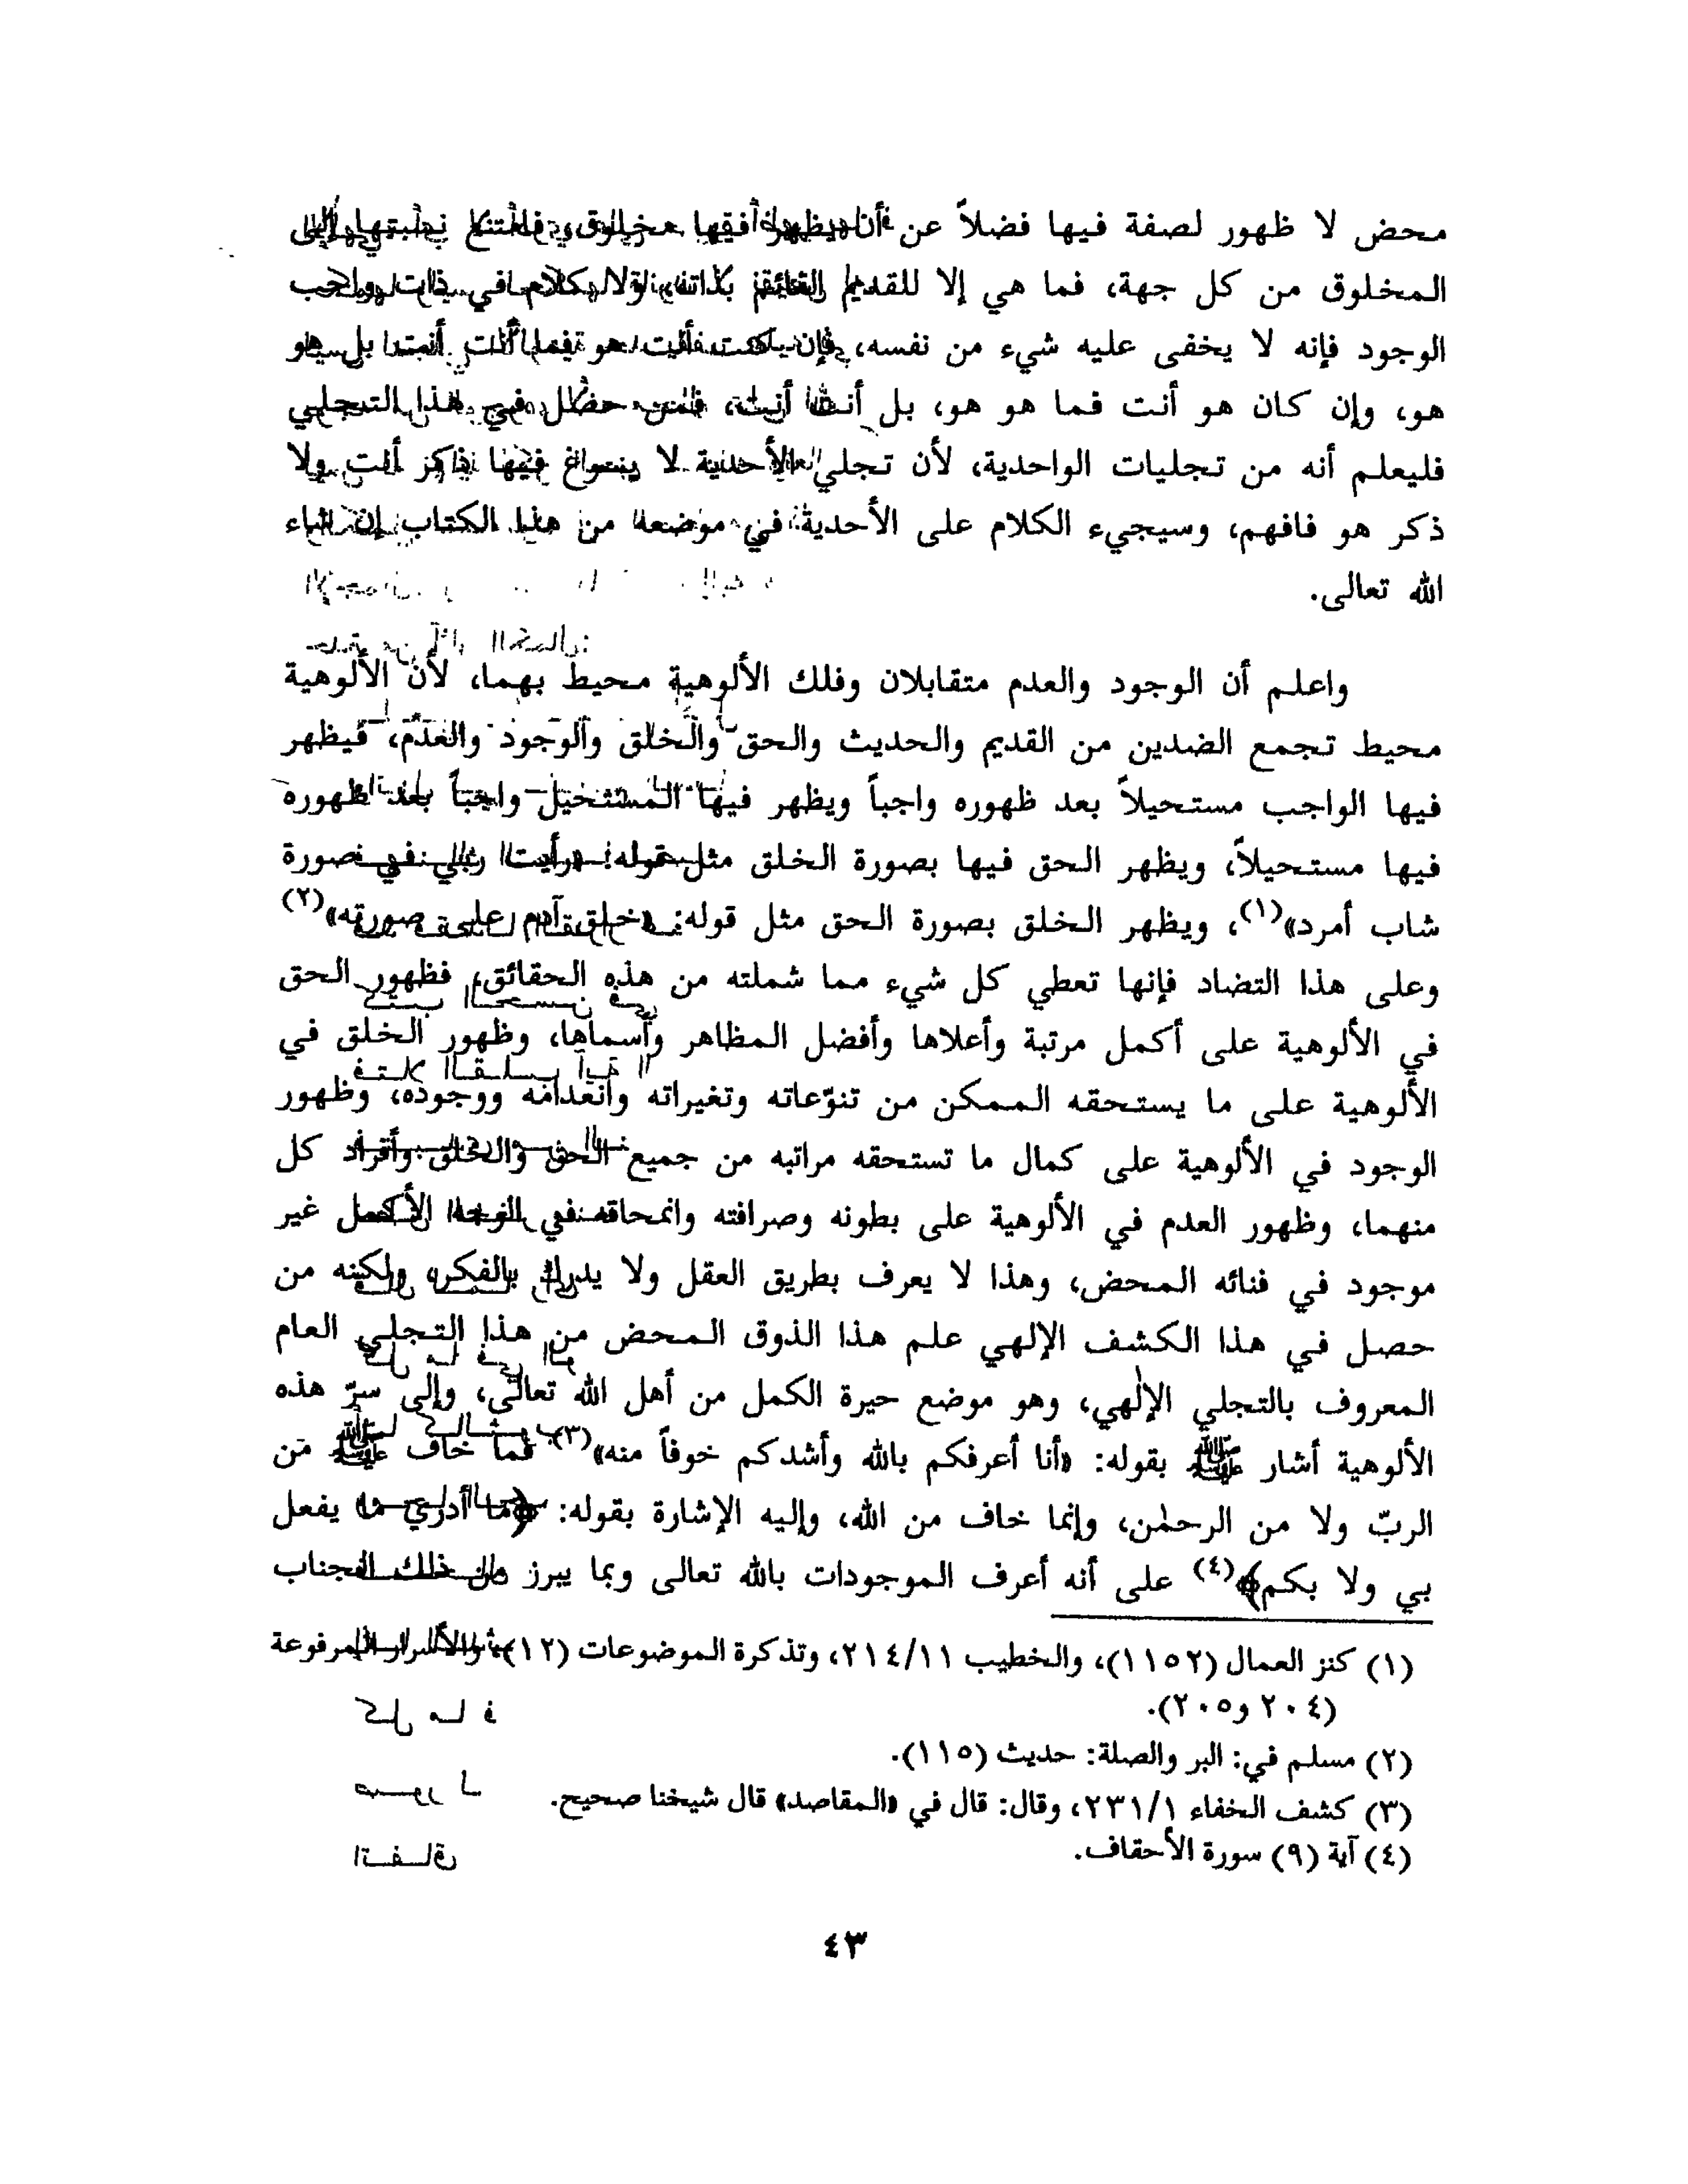 محض لا ظهور لصفة فيها فضلاً عن أن يظهر فيها مخلوق، فامتنع نسبتها إلى
المخلوق من كل جهة، فما هي إلا للقديم القائم بذاته، ولا كلام في ذات واجب
الوجود فإنه لا يخفى عليه شيء من نفسه، فإن كنت أنت هو فما أنت أنت بل هو
هو، وإن كان هو أنت فما هو هو، بل أنت أنت، فمن حصل في هذا التجلي
فليعلم أنه من تجليات الواحدية، لأن تجلي الأحدية لا يسوغ فيها ذكر أنت ولا
ذكر هو فافهم، وسيجيء الكلام على الأحدية في موضعه من هذا الكتاب إن شاء
الله تعالى.
واعلم أن الوجود والعدم متقابلان وفلك الألوهية محيط بهما، لأن الألوهية
محيط تجمع الضدين من القديم والحديث والحق والخلق والوجود والعدم، فيظهر
فيها الواجب مستحيلاً بعد ظهوره واجباً ويظهر فيها المستحيل واجباً بعد ظهوره
فيها مستحيلاً، ويظهر الحق فيها بصورة الخلق مثل قوله: «رأيت ربي في صورة
شاب أمرد»(١)، ويظهر الخلق بصورة الحق مثل قوله: «خلق آدم على صورته»(٢)
وعلى هذا التضاد فإنها تعطي كل شيء مما شملته من هذه الحقائق، فظهور الحق
في الألوهية على أكمل مرتبة وأعلاها وأفضل المظاهر وأسماها، وظهور الخلق في
الألوهية على ما يستحقه الممكن من تنوّعاته وتغيراته وانعدامه ووجوده، وظهور
الوجود في الألوهية على كمال ما تستحقه مراتبه من جميع الحق والخلق وأفراد كل
منهما، وظهور العدم في الألوهية على بطونه وصرافته وانمحاقه في الوجه الأكمل غير
موجود في فنائه المحض، وهذا لا يعرف بطريق العقل ولا يدرك بالفكر، ولكنه من
حصل في هذا الكشف الإلهي علم هذا الذوق المحض من هذا التجلي العام
المعروف بالتجلي الإلٰهي، وهو موضع حيرة الكمل من أهل الله تعالى، وإلى سرّ هذه
الألوهية أشار ﷺ بقوله: «أنا أعرفكم بالله وأشدكم خوفاً منه»(٣) فما خاف ﷺ من
الربّ ولا من الرحمٰن، وإنما خاف من الله، وإليه الإشارة بقوله: ﴿ما أدري ما يفعل
بي ولا بكم﴾(٤) على أنه أعرف الموجودات بالله تعالى وبما يبرز من ذلك الجناب
(١) كنز العمال (١١٥٢)، والخطيب ٢١٤/١١، وتذكرة الموضوعات (١٢)، والأسرار المرفوعة
(٢٠٤ و٢٠٥).
(٢) مسلم في: البر والصلة: حديث (١١٥).
(٣) كشف الخفاء ٢٣١/١، وقال: قال في «المقاصد» قال شيخنا صحيح.
(٤) آية (٩) سورة الأحقاف.
٤٣